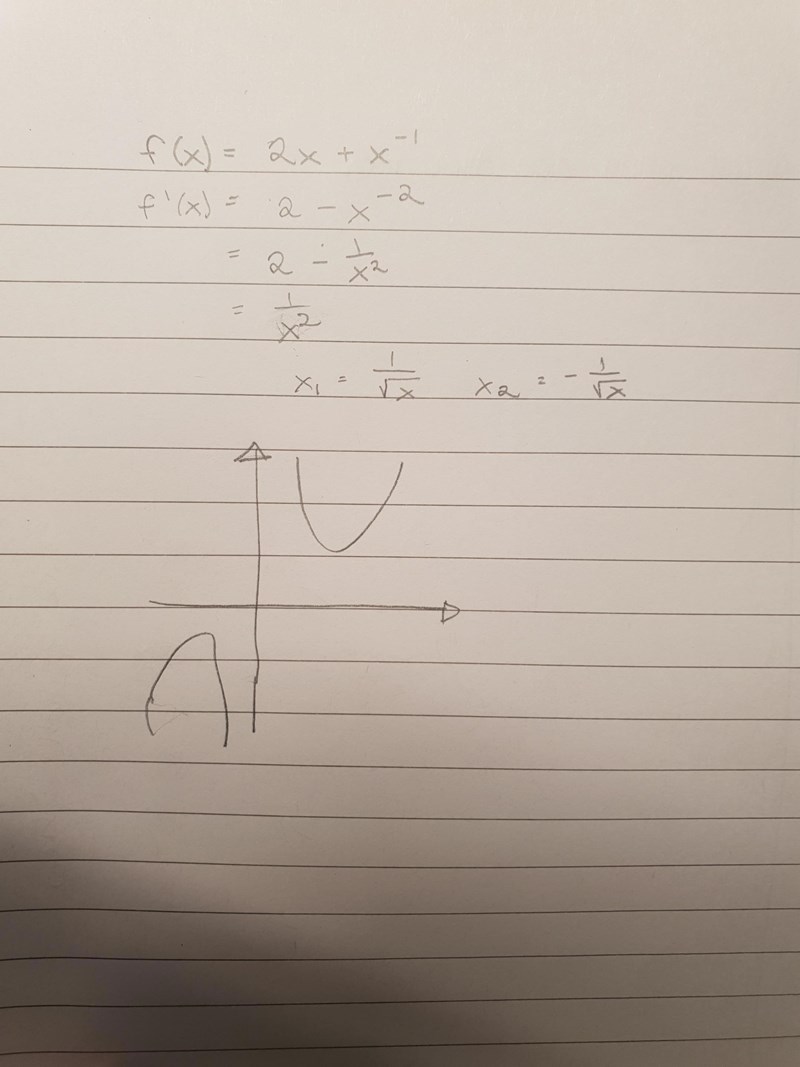 f(x) = 2x + x⁻¹
f'(x) = 2 - x⁻²
= 2 - 1/x²
= 1/x²
x₁ = 1/√x x₂ = - 1/√x